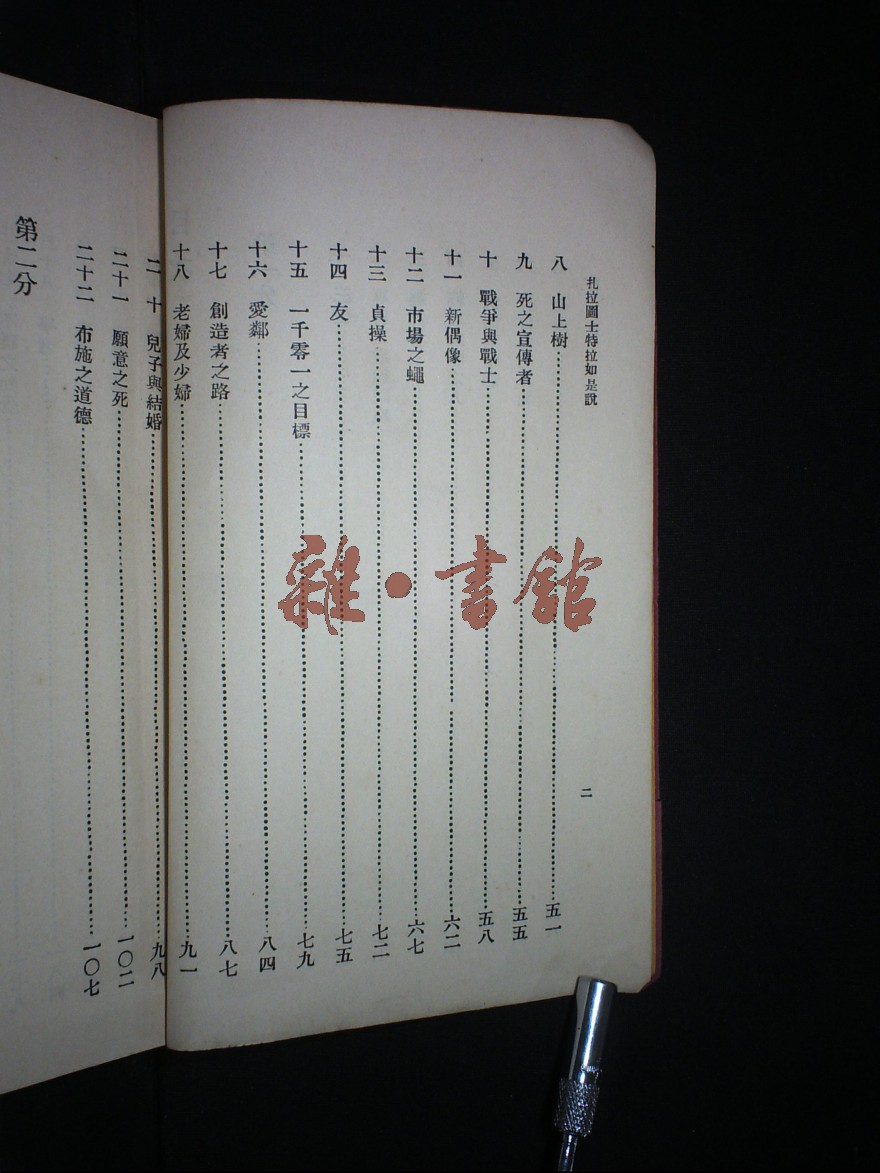 扎拉圖士特拉如是說
二
八 山上樹 五一
九 死之宣傳者 五五
十 戰爭與戰士 五八
十一 新偶像 六二
十二 市場之蠅 六七
十三 貞操 七二
十四 友 七五
十五 一千零一之目標 七九
十六 愛鄰 八四
十七 創造者之路 八七
十八 老婦及少婦 九一
二十 兒子與結婚 九八
二十一 願意之死 一〇二
二十二 布施之道德 一〇七
第二分
雜·書館